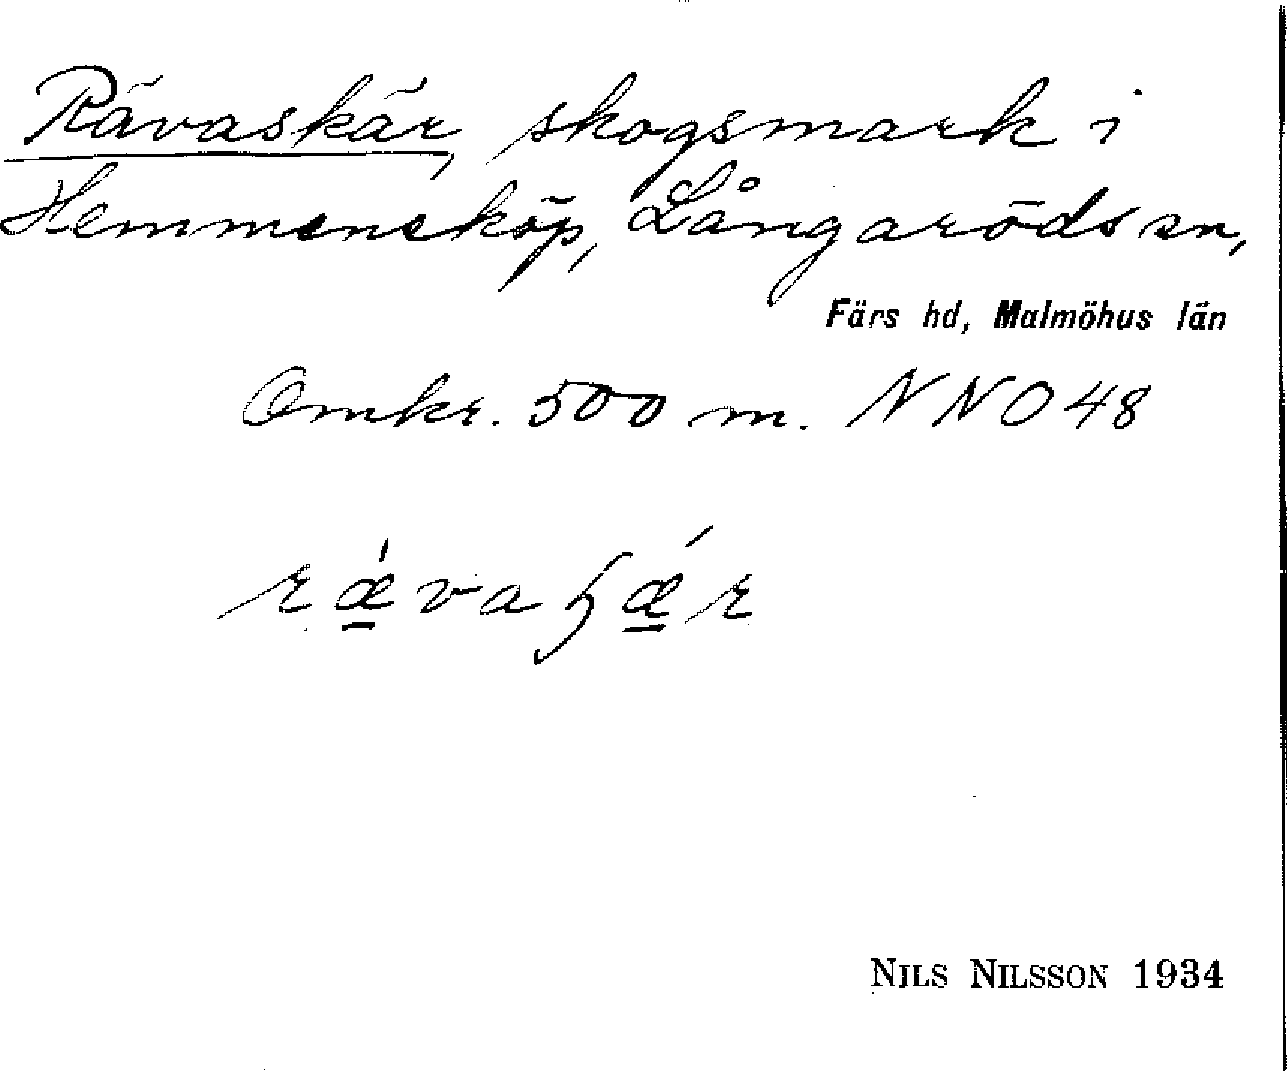 Rävaskär, skogsmark i
Hemmeneköp, Långaröds sn,
Färs hd, Malmöhus län
Omkr. 500 m. NNO 48
NILS NILSSON 1934